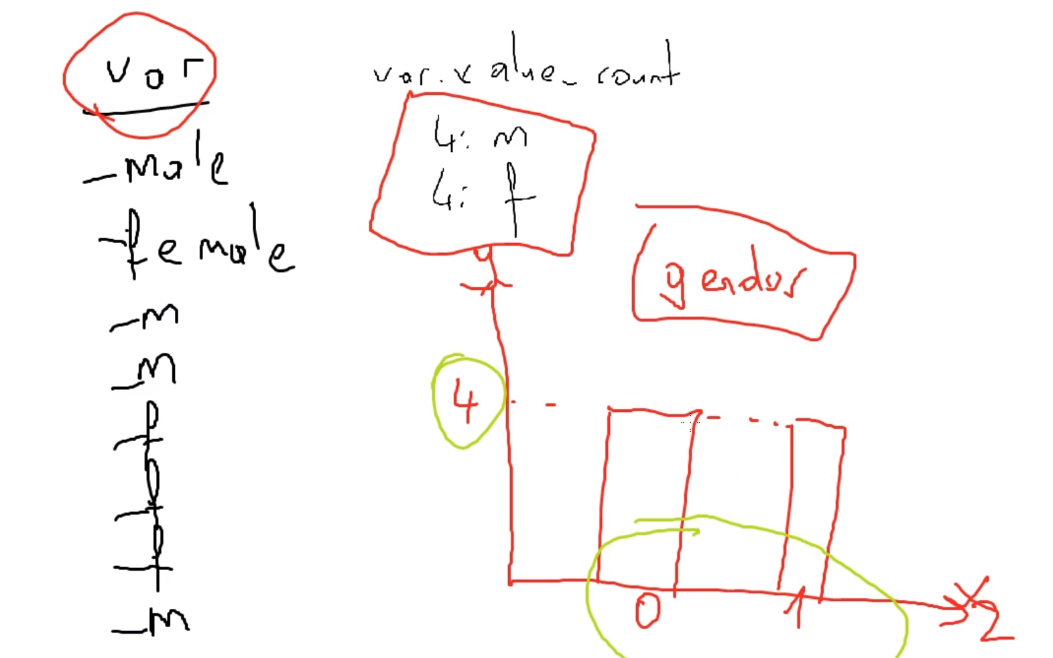 var
-male
-female
-m
-m
-f
-f
-f
-m
var.value_count
4: m
4: f
gendor
4
0
1